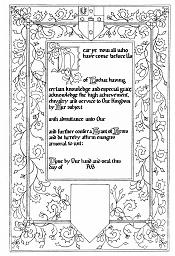 Hear ye, you all who
have come before us
of Noctua having
certain knowledge and especial grace,
acknowledge the high achievement,
chivalry and service to Our Kingdom
by Our subject
with admittance unto Our
and further confer a Grant of Arms
and do hereby affirm ensigne
armorial to wit:
Done by Our hand and seal this
day of A.S.